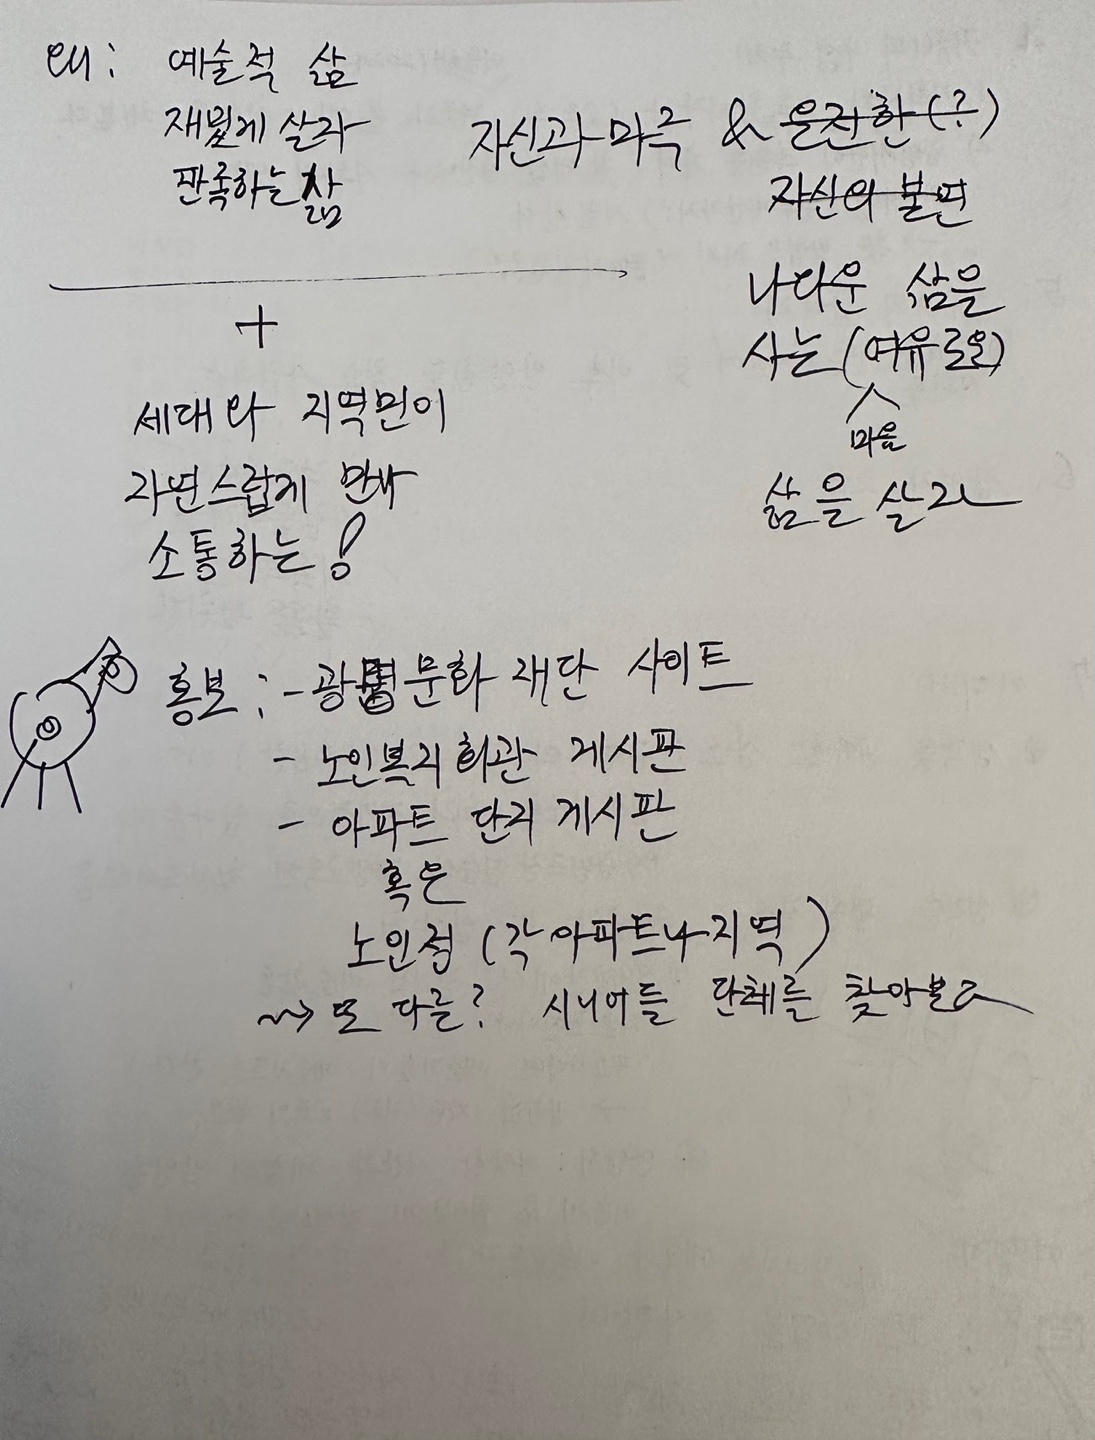 왜: 예술적 삶
재밌게 살라
만족하는 삶
자신과 마주 & 온전한(?)
자신의 불면
나다운 삶을
사는 (여유로운)
마음
삶을 살라
+
세대와 지역민이
자연스럽게 만나
소통하는!
홍보: - 광명문화재단 사이트
- 노인복지회관 게시판
- 아파트 단지 게시판
혹은
노인정 (각 아파트나 지역)
~> 또 다를? 시니어들 단체를 찾아보고